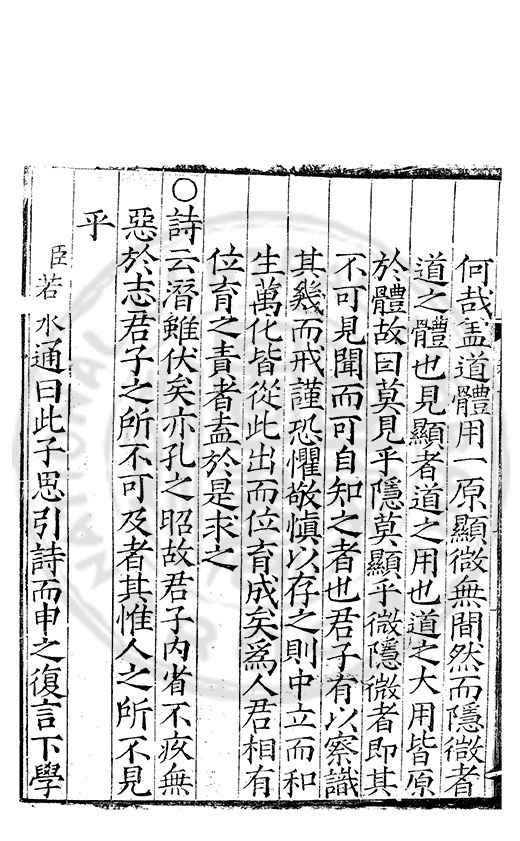 何哉盖道體用一原顯微無間然而隱微者
道之體也見顯者道之用也道之大用皆原
於體故曰莫見乎隱莫顯乎微隱微者即其
不可見聞而可自知之者也君子有以察識
其幾而戒謹恐懼敬慎以存之則中立而和
生萬化皆從此出而位育成矣為人君相有
位育之責者盍於是求之
○詩云潛雖伏矣亦孔之昭故君子內省不疚無
惡於志君子之所不可及者其惟人之所不見
乎
臣若水通曰此子思引詩而申之復言下學